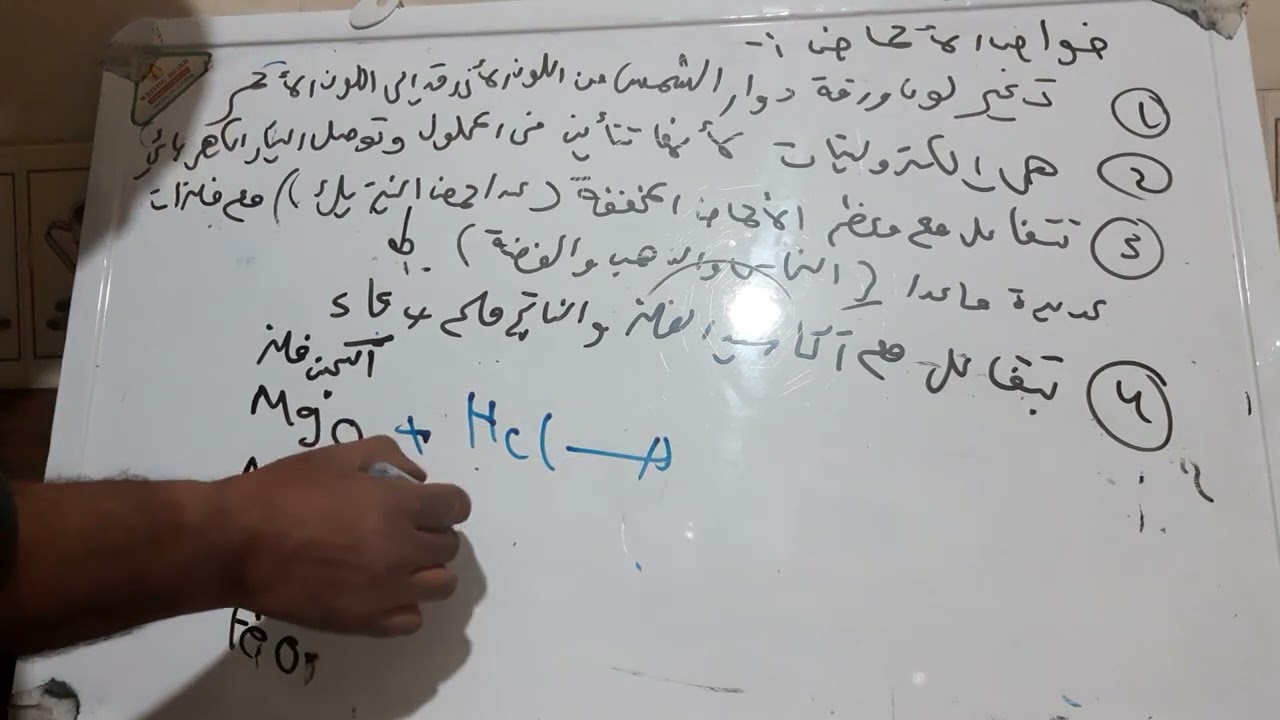 خواص الأحماض :-
① تغير لون ورقة دوار الشمس من اللون الأزرق إلى اللون الأحمر
② هي إلكتروليتات لأنها تتأين في المحلول وتوصل التيار الكهربائي
③ تتفاعل مع معظم الأحماض المخففة (عدا حمض النيتريك) مع فلزات
عديدة ماعدا (النحاس والذهب والفضة)
④ تتفاعل مع أكاسيد الفلز والناتج ملح + ماء
أكسيد فلز
MgO + HCl →
Fe O
WRITING BOARD